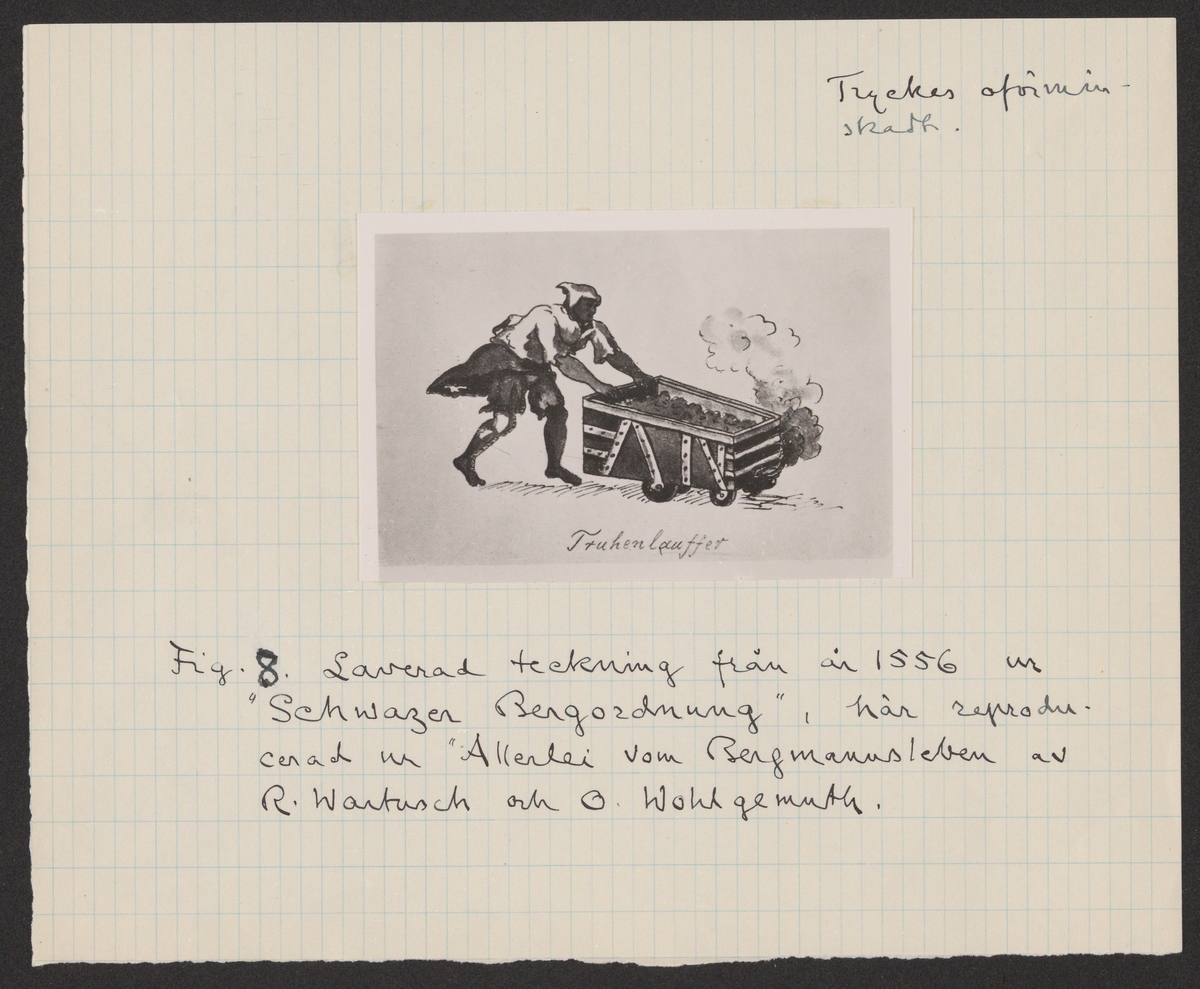 Tryckes oförmin-
skadt.
Truhenlauffer
Fig. 8. Laverad teckning från år 1556 ur
"Schwazer Bergordnung", här reprodu-
cerad ur "Allerlei vom Bergmannsleben av
R. Wartusch och O. Wohlgemuth.